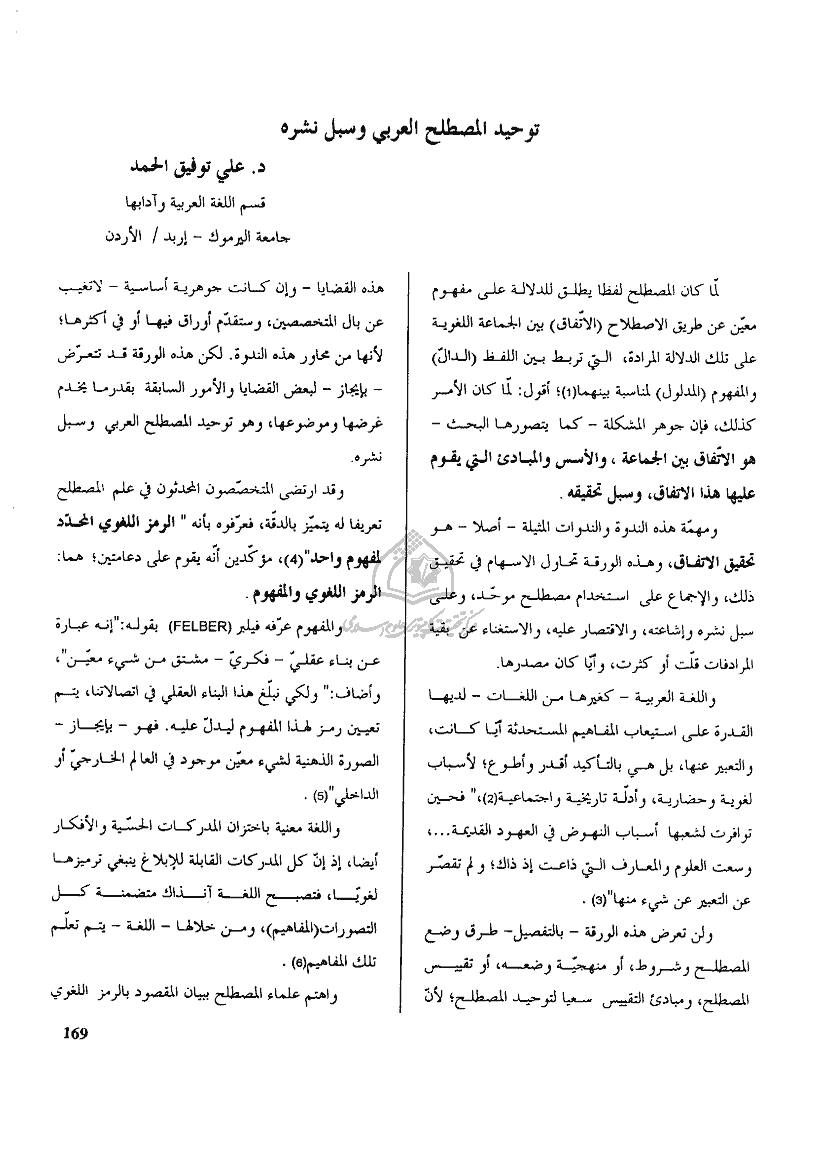 توحيد المصطلح العربي وسبل نشره
د. علي توفيق الحمد
قسم اللغة العربية وآدابها
جامعة اليرموك – إربد / الأردن
لمّا كان المصطلح لفظا يطلق للدلالة على مفهوم
معيّن عن طريق الاصطلاح (الاتّفاق) بين الجماعة اللغوية
على تلك الدلالة المرادة، التي تربط بين اللفظ (الدالّ)
والمفهوم (المدلول) لمناسبة بينهما(1)؛ أقول: لمّا كان الأمر
كذلك، فإن جوهر المشكلة – كما يتصورها البحث –
هو الاتّفاق بين الجماعة ، والأسس والمبادئ التي يقوم
عليها هذا الاتفاق، وسبل تحقيقه .
ومهمّة هذه الندوة والندوات المثيلة – أصلا – هو
تحقيق الاتفاق، وهذه الورقة تحاول الاسهام في تحقيق
ذلك، والإجماع على استخدام مصطلح موحّد، وعلى
سبل نشره وإشاعته، والاقتصار عليه، والاستغناء عن بقية
المرادفات قلّت أو كثرت، وأيّا كان مصدرها.
واللغة العربية – كغيرها من اللغات – لديها
القدرة على استيعاب المفاهيم المستحدثة أيّا كانت،
والتعبير عنها، بل هي بالتأكيد أقدر وأطوع؛ لأسباب
لغوية وحضارية، وأدلّة تاريخية واجتماعية(2)،" فحين
توافرت لشعبها أسباب النهوض في العهود القديمة...،
وسعت العلوم والمعارف التي ذاعت إذ ذاك؛ و لم تقصّر
عن التعبير عن شيء منها"(3) .
ولن تعرض هذه الورقة – بالتفصيل- طرق وضع
المصطلح وشروط، أو منهجيّة وضعه، أو تقييس
المصطلح، ومبادئ التقييس سعيا لتوحيد المصطلح؛ لأنّ
هذه القضايا – وإن كانت جوهرية أساسية – لاتغيب
عن بال المتخصصين، وستقدّم أوراق فيها أو في أكثرها؛
لأنها من محاور هذه الندوة. لكن هذه الورقة قد تتعرّض
– بإيجاز – لبعض القضايا والأمور السابقة بقدرما يخدم
غرضها وموضوعها، وهو توحيد المصطلح العربي وسبل
نشره.
وقد ارتضى المتخصّصون المحدثون في علم المصطلح
تعريفا له يتميّز بالدقّة، فعرّفوه بأنه " الرمز اللغوي المحدّد
لمفهوم واحد"(4)، مؤكّدين أنّه يقوم على دعامتين؛ هما:
الرمز اللغوي والمفهوم .
والمفهوم عرّفه فيلبر (FELBER) بقوله:"إنه عبارة
عن بناء عقليّ – فكريّ – مشتق من شيء معيّن"،
وأضاف:" ولكي نبلّغ هذا البناء العقلي في اتصالاتنا، يتم
تعيين رمز لهذا المفهوم ليدلّ عليه. فهو – بإيجاز –
الصورة الذهنية لشيء معيّن موجود في العالم الخارجيّ أو
الداخلي"(5) .
واللغة معنية باختزان المدركات الحسّية والأفكار
أيضا، إذ إنّ كل المدركات القابلة للإبلاغ ينبغي ترميزها
لغويّا، فتصبح اللغة آنذاك متضمنة كل
التصورات(المفاهيم)، ومن خلالها – اللغة – يتم تعلّم
تلك المفاهيم(6) .
واهتم علماء المصطلح ببيان المقصود بالرمز اللغوي
169